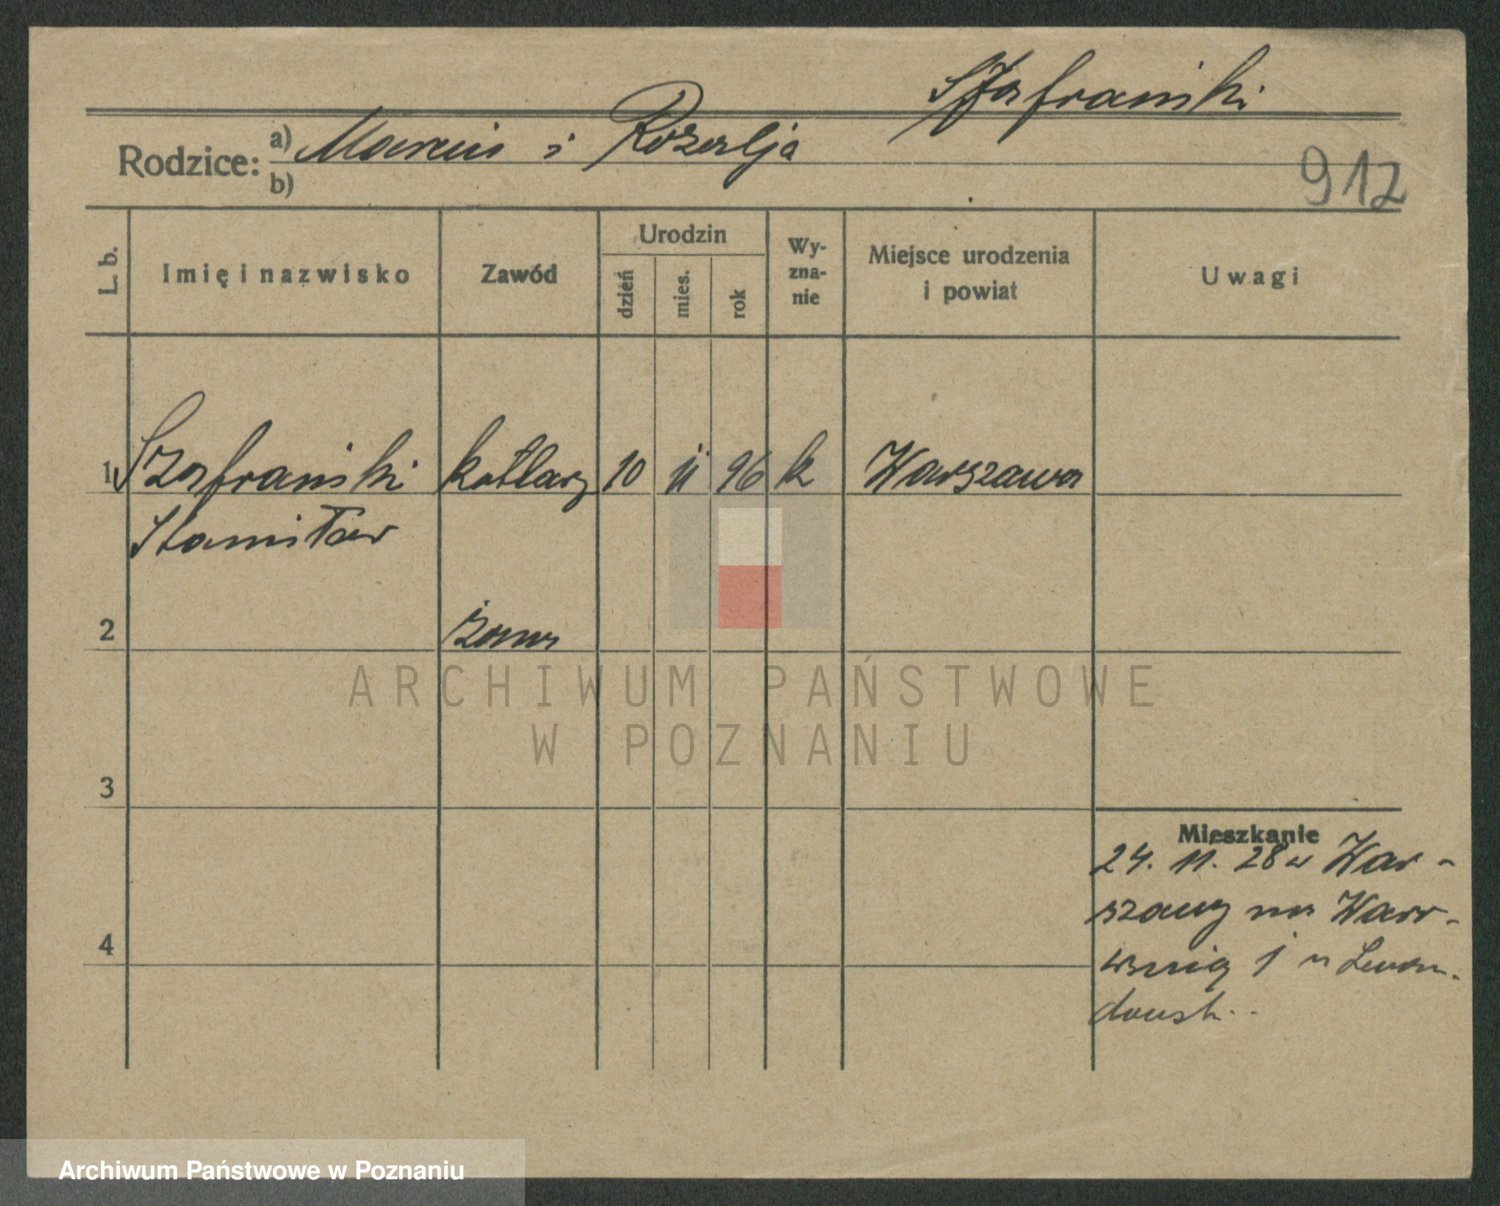 Szafrański
Rodzice: a) Marcin i Rozalja
b)
912
L. b.
Imię i nazwisko
Zawód
Urodzin
dzień
mies.
rok
Wy-
zna-
nie
Miejsce urodzenia
i powiat
Uwagi
1 Szafrański kotlarz 10 11 96 k Warszawa
Stanisław
2 żona
ARCHIWUM PAŃSTWOWE
W POZNANIU
3
Mieszkanie
24. 11. 28 w War-
szawy na
4
1 u Lewan-
dowsk..
Archiwum Państwowe w Poznaniu